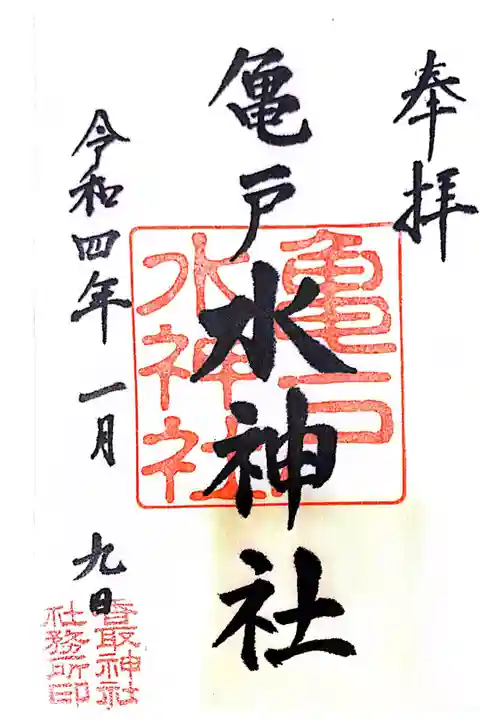 奉拝
亀戸水神社
亀戸
水神社
令和四年一月九日
香取神社
社務所印